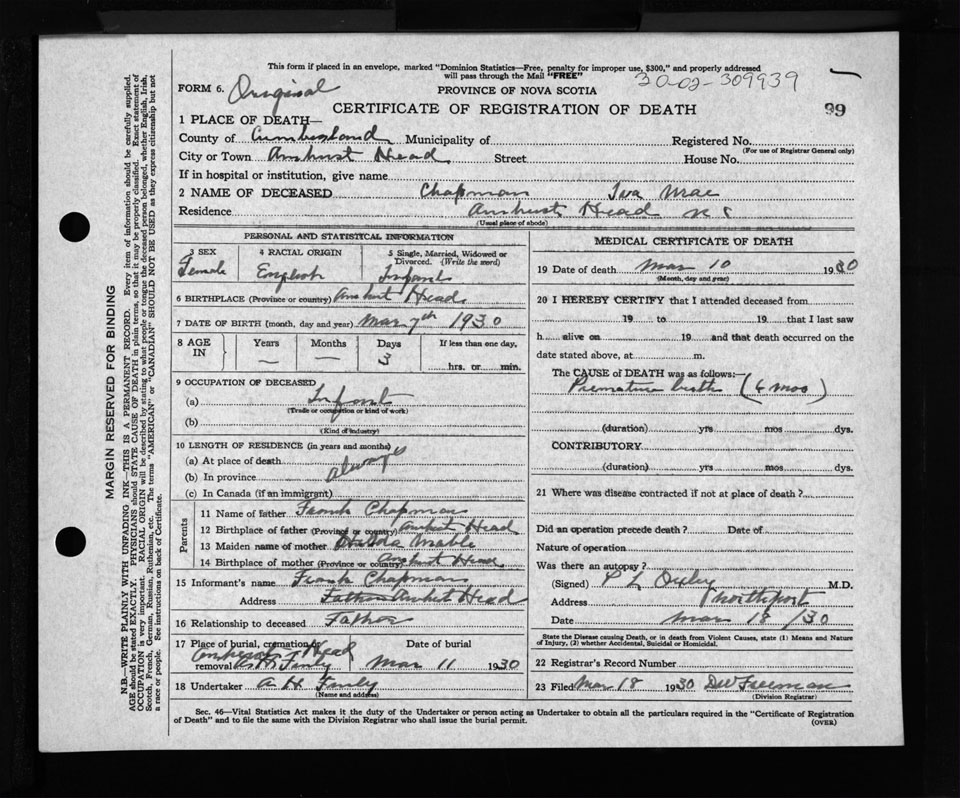 This form if placed in an envelope, marked "Dominion Statistics—Free, penalty for improper use, $300," and properly addressed
will pass through the Mail "FREE"
30-02-309939
FORM 6. Original
PROVINCE OF NOVA SCOTIA
CERTIFICATE OF REGISTRATION OF DEATH
99
1 PLACE OF DEATH—
County of Cumberland Municipality of Registered No.
(For use of Registrar General only)
City or Town Amherst Head Street House No.
If in hospital or institution, give name
2 NAME OF DECEASED Chapman Iva Mae
Residence Amherst Head N S
(Usual place of abode)
PERSONAL AND STATISTICAL INFORMATION
3 SEX 4 RACIAL ORIGIN 5 Single, Married, Widowed or
Divorced. (Write the word)
Female English Infant
6 BIRTHPLACE (Province or country) Amherst Head
7 DATE OF BIRTH (month, day and year) Mar 7th 1930
8 AGE IN Years Months Days If less than one day,
— — 3 hrs. or min.
9 OCCUPATION OF DECEASED
(a) Infant
(Trade or occupation or kind of work)
(b)
(Kind of industry)
10 LENGTH OF RESIDENCE (in years and months)
(a) At place of death
(b) In province always
(c) In Canada (if an immigrant)
Parents
11 Name of father Frank Chapman
12 Birthplace of father (Province or country) Amherst Head
13 Maiden name of mother Hilda
14 Birthplace of mother (Province or country) Amherst Head
15 Informant's name Frank Chapman
Address Father Amherst Head
16 Relationship to deceased Father
17 Place of burial, cremation or removal Date of burial
Amherst Head
Mar 11 1930
18 Undertaker A H
(Name and address)
MEDICAL CERTIFICATE OF DEATH
19 Date of death Mar 10 1930
(Month, day and year)
20 I HEREBY CERTIFY that I attended deceased from
19 to 19 that I last saw
h alive on 19 and that death occurred on the
date stated above, at m.
The CAUSE OF DEATH was as follows:—
Premature birth (6 mos)
(duration) yrs mos dys.
CONTRIBUTORY
(duration) yrs mos dys.
21 Where was disease contracted if not at place of death?
Did an operation precede death? Date of
Nature of operation
Was there an autopsy?
(Signed) M.D.
Address Northport
Date Mar 18/30
State the Disease causing Death, or in death from Violent Causes, state (1) Means and Nature
of Injury, (2) whether Accidental, Suicidal or Homicidal.
22 Registrar's Record Number
23 Filed Mar 18 1930 Freeman
(Division Registrar)
Sec. 46—Vital Statistics Act makes it the duty of the Undertaker or person acting as Undertaker to obtain all the particulars required in the "Certificate of Registration
of Death" and to file the same with the Division Registrar who shall issue the burial permit.
(OVER)
MARGIN RESERVED FOR BINDING
N.B.—WRITE PLAINLY WITH UNFADING INK—THIS IS A PERMANENT RECORD. Every item of information should be carefully supplied.
AGE should be stated EXACTLY. PHYSICIANS should STATE CAUSE OF DEATH in plain terms, so that it may be properly classified. Exact statement of
OCCUPATION is very important. RACIAL ORIGIN will be described by stating to what people or tongue the deceased person belonged, whether English, Irish,
Scotch, French, German, Russian, Ruthenian, etc. The terms "AMERICAN" or "CANADIAN" SHOULD NOT BE USED as they express citizenship but not
a race or people. See instructions on back of Certificate.